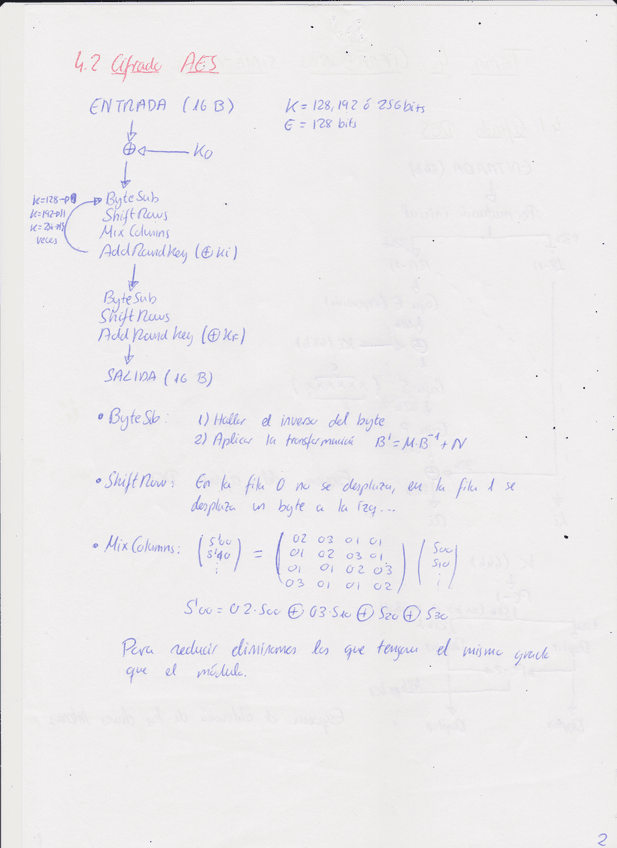 4.2 Cifrado AES
ENTRADA (16 B)
K = 128, 192 ó 256 bits
E = 128 bits
⊕ ← K0
ByteSub
ShiftRows
Mix Columns
AddRandKey (⊕Ki)
K=128→9
K=192→11
veces
ByteSub
ShiftRows
AddRandKey (⊕KF)
SALIDA (16 B)
• ByteSb: 1) Hallar el inverso del byte
2) Aplicar la transformació B' = M·B⁻¹ + N
• ShiftRow: En la fila 0 no se desplaza, en la fila 1 se
desplaza un byte a la izq...
• MixColumns: (S'00 S'10 ⋮) = (02 03 01 01
01 02 03 01
01 01 02 03
03 01 01 02) (S00 S10 ⋮)
S'00 = 02·S00 ⊕ 03·S10 ⊕ S20 ⊕ S30
Para reducir eliminamos los que tengan el mismo grado
que el módulo.
2